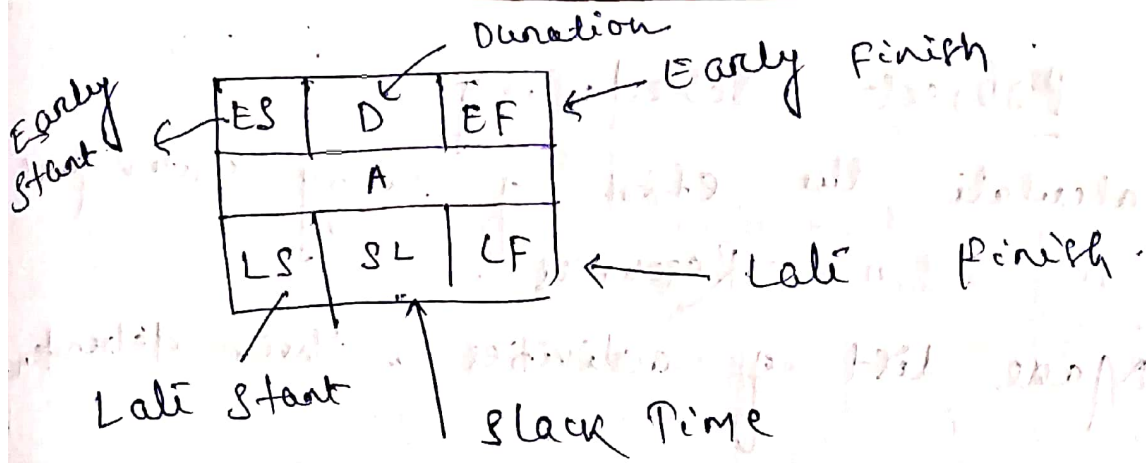 Duration
Early Finish
Early
Start
ES D EF
A
LS SL LF
Late Finish.
Late Start
Slack Time